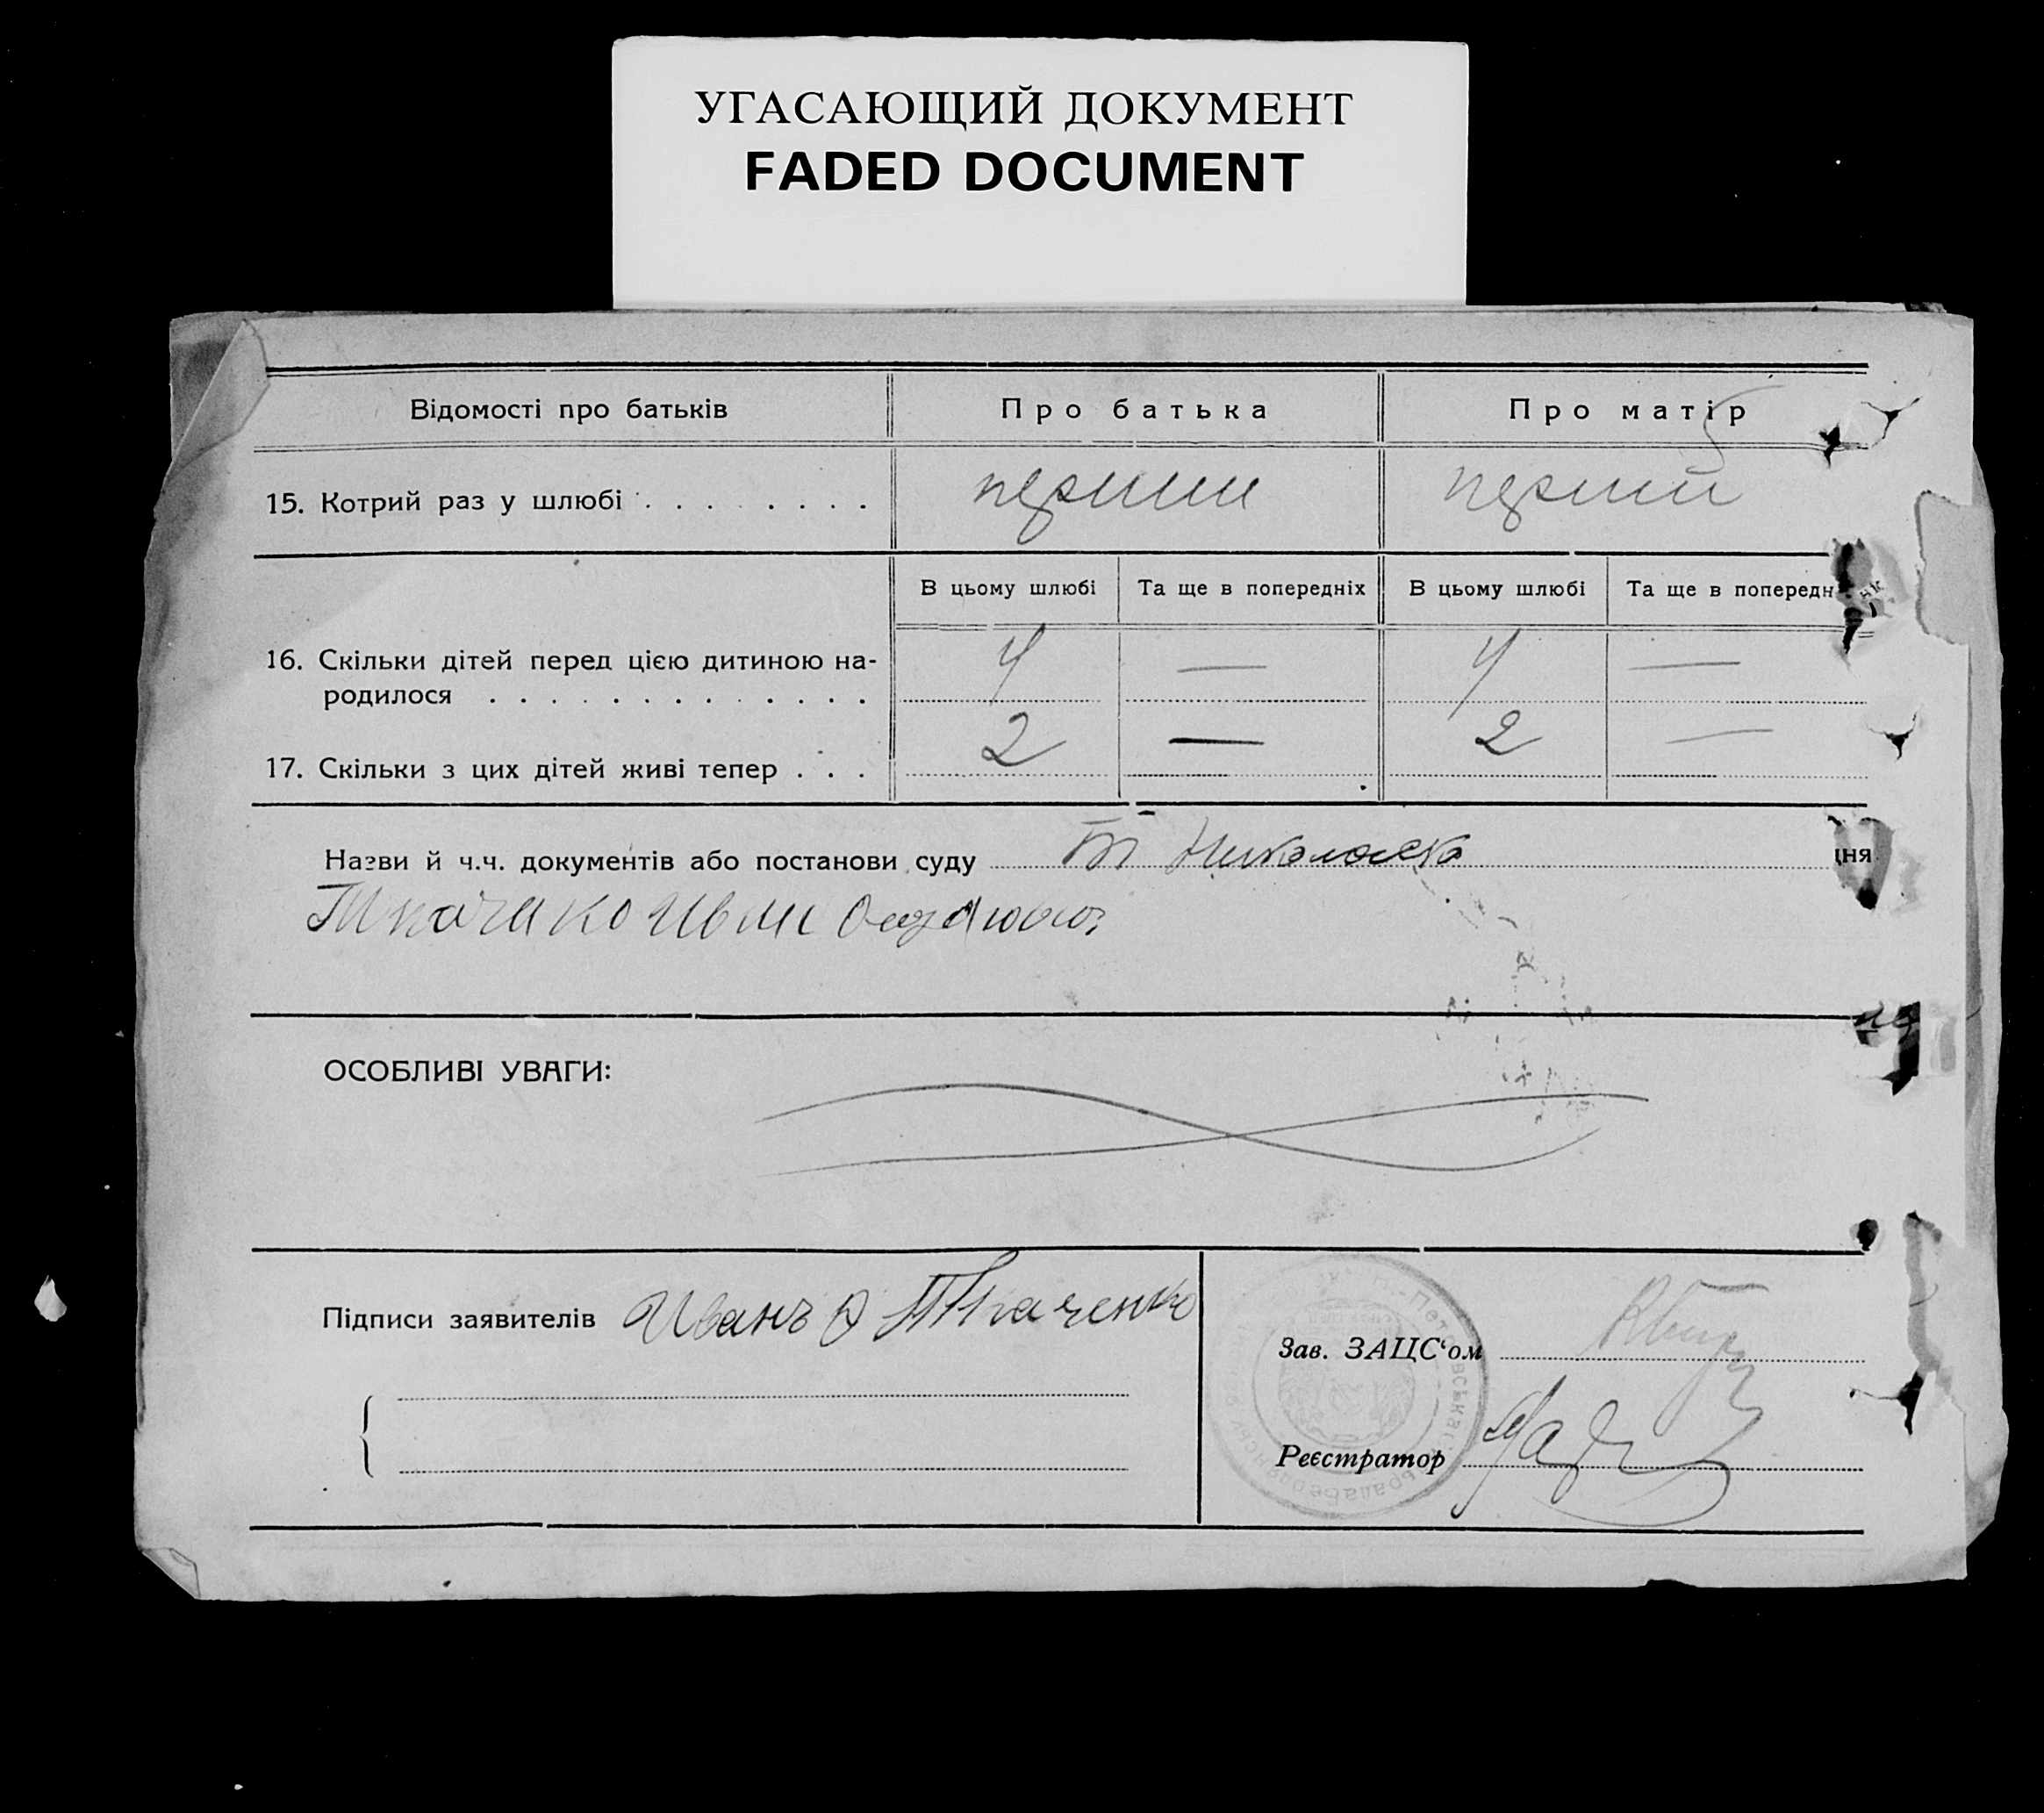 УГАСАЮЩИЙ ДОКУМЕНТ
FADED DOCUMENT
Відомості про батьків Про батька Про матір
15. Котрий раз у шлюбі . . . . . . . . перший перший
В цьому шлюбі Та ще в попередніх В цьому шлюбі Та ще в попередн
16. Скільки дітей перед цією дитиною на-
родилося . . . . . . . . . . . . . 4 — 4 —
17. Скільки з цих дітей живі тепер . . . 2 — 2 —
Назви й ч.ч. документів або постанови суду
ОСОБЛИВІ УВАГИ:
Підписи заявителів Иванъ О Ткаченко
Зав. ЗАЦС‘ом
Реєстратор